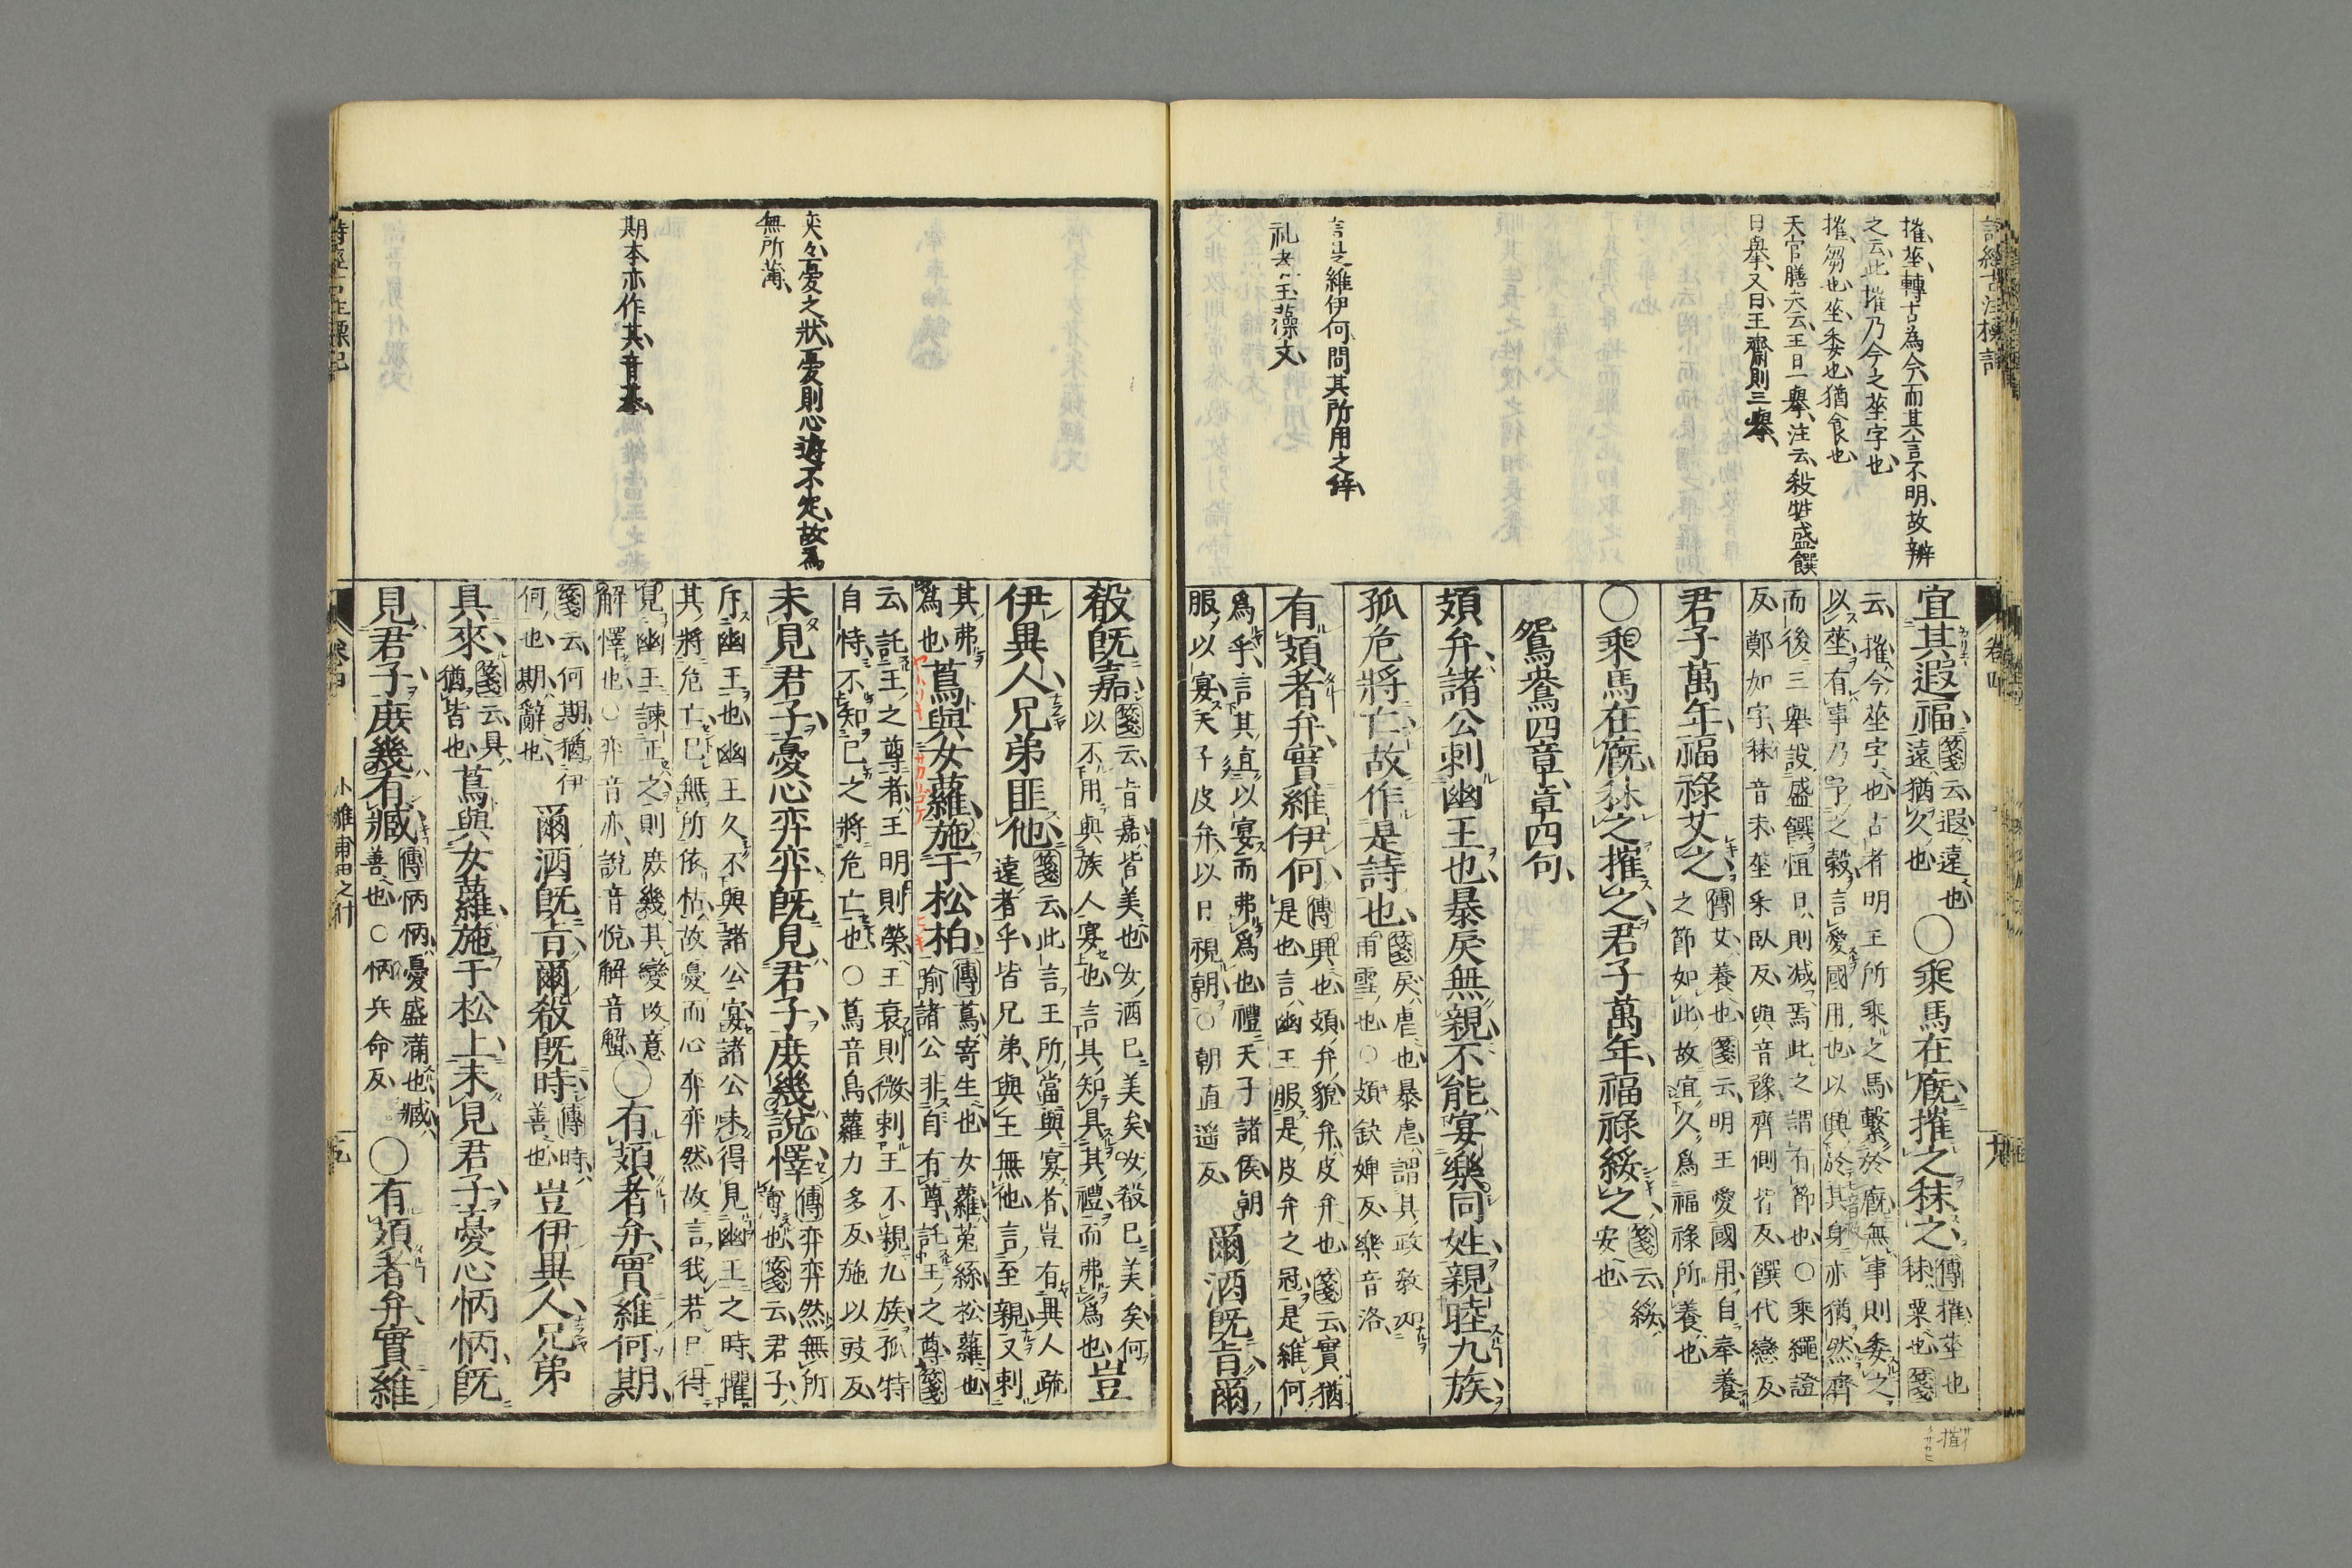 摧、莝、轉古為今、而其言不明、故辨
之云、此摧乃今之莝字也、
摧芻也、莝委也、猶食也
天官膳夫云、王日一舉、注云、殺牲盛饌
日舉、又曰、王齋則三舉、
言是維伊何、問其所用之
礼者、玉藻文、
宜其遐福、箋云遐遠也
遠、猶久也
○乘馬在廐、摧之秣之、傳摧、莝也
秣、粟也、箋
云、摧今莝字也、古者明王所乘之馬繫於廐、無事則委之
以莝、有事乃予之穀、言愛國用也、以興於其身亦猶然、齊
而後三舉設盛饌、恒日則減焉、此之謂有節也、○乘繩證
反、鄭如字、秣音末、莝采臥反、與音豫、齊側皆反、饌代戀反、
君子萬年、福祿艾之、傳艾、養也、箋云、明王愛國用、自奉養
之節如此、故宜久為福祿所養也、
○乘馬在廐、秣之摧之、君子萬年、福祿綏之、箋云、綏、
安也
鴛鴦四章、章四句、
頍弁、諸公刺幽王也、暴戾無親、不能宴樂同姓、親睦九族、
孤危將亡、故作是詩也、箋戾、虐也、暴虐、謂其政教如
雨雪也、○頍缺婢反、樂音洛、
有頍者弁、實維伊何、傳興也、頍、弁貌、弁、皮弁也、箋云、實、猶
是也、言幽王服是皮弁之冠、是維何
爲乎、言其宜以宴而弗爲也、禮、天子諸侯朝
服、以宴、天子皮弁、以日視朝、○朝直遥反、
爾酒既旨、爾
殽既嘉、箋云、旨嘉、皆美也、女酒已美矣、女殽已美矣、何
以不用與族人宴也、言其知具其禮而弗爲也、
豈
伊異人、兄弟匪他、箋云、此言王所當與宴者、豈有異人疏
遠者乎、皆兄弟與王無他、言至親、又刺
其弗
爲也
蔦與女蘿、施于松柏、傳蔦、寄生也、女蘿、菟絲、松蘿也、
喻諸公非自有尊、託王之尊、箋
云、託王之尊者、王明則榮、王衰則微、刺王不親九族、孤特
自恃、不知己之將危亡也、○蔦音鳥、蘿力多反、施以豉反、
未見君子、憂心弈弈、既見君子、庶幾說懌、傳弈弈然無所
薄也、箋云、君子、
斥幽王也、幽王久不與諸公宴、諸公未得見幽王之時、懼
其將危亡、已無所依怙、故憂而心弈弈然、故言、我若已得
見幽王諫正之、則庶幾其變改意
解懌也、○弈音亦、說音悅、解音蟹、
○有頍者弁、實維何期、
箋云、何期、猶伊
何也、期、辭也、
爾酒既旨、爾殽既時、傳時、
善也
豈伊異人、兄弟
具來、箋云、具、
猶皆也
蔦與女蘿、施于松上、未見君子、憂心怲怲、既
見君子、庶幾有臧、傳怲怲、憂盛滿也、臧、
善也、○怲兵命反、
○有頍者弁、實維
奕々、憂之狀、憂則心遊不定、故為
無所薄、
期本亦作其、音基、
卷四
小雅甫田之什